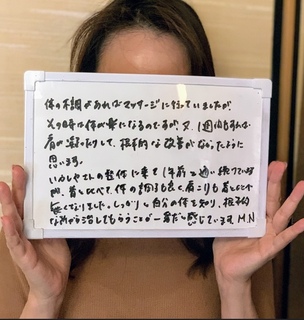 体の不調があればマッサージに行っていましたが、
その時は体が楽になるのですが、又、1週間もすれば
肩が凝ったりして、根本的な改善がなかったように
思います。
いかしやストの整体に来て1年前と通い続けている
間、昔に比べて、体の も良く、肩こりも
無くなりました。しっかり自分の体を知り、根本的
な所から治してもらうことが一番だと感じています M.N